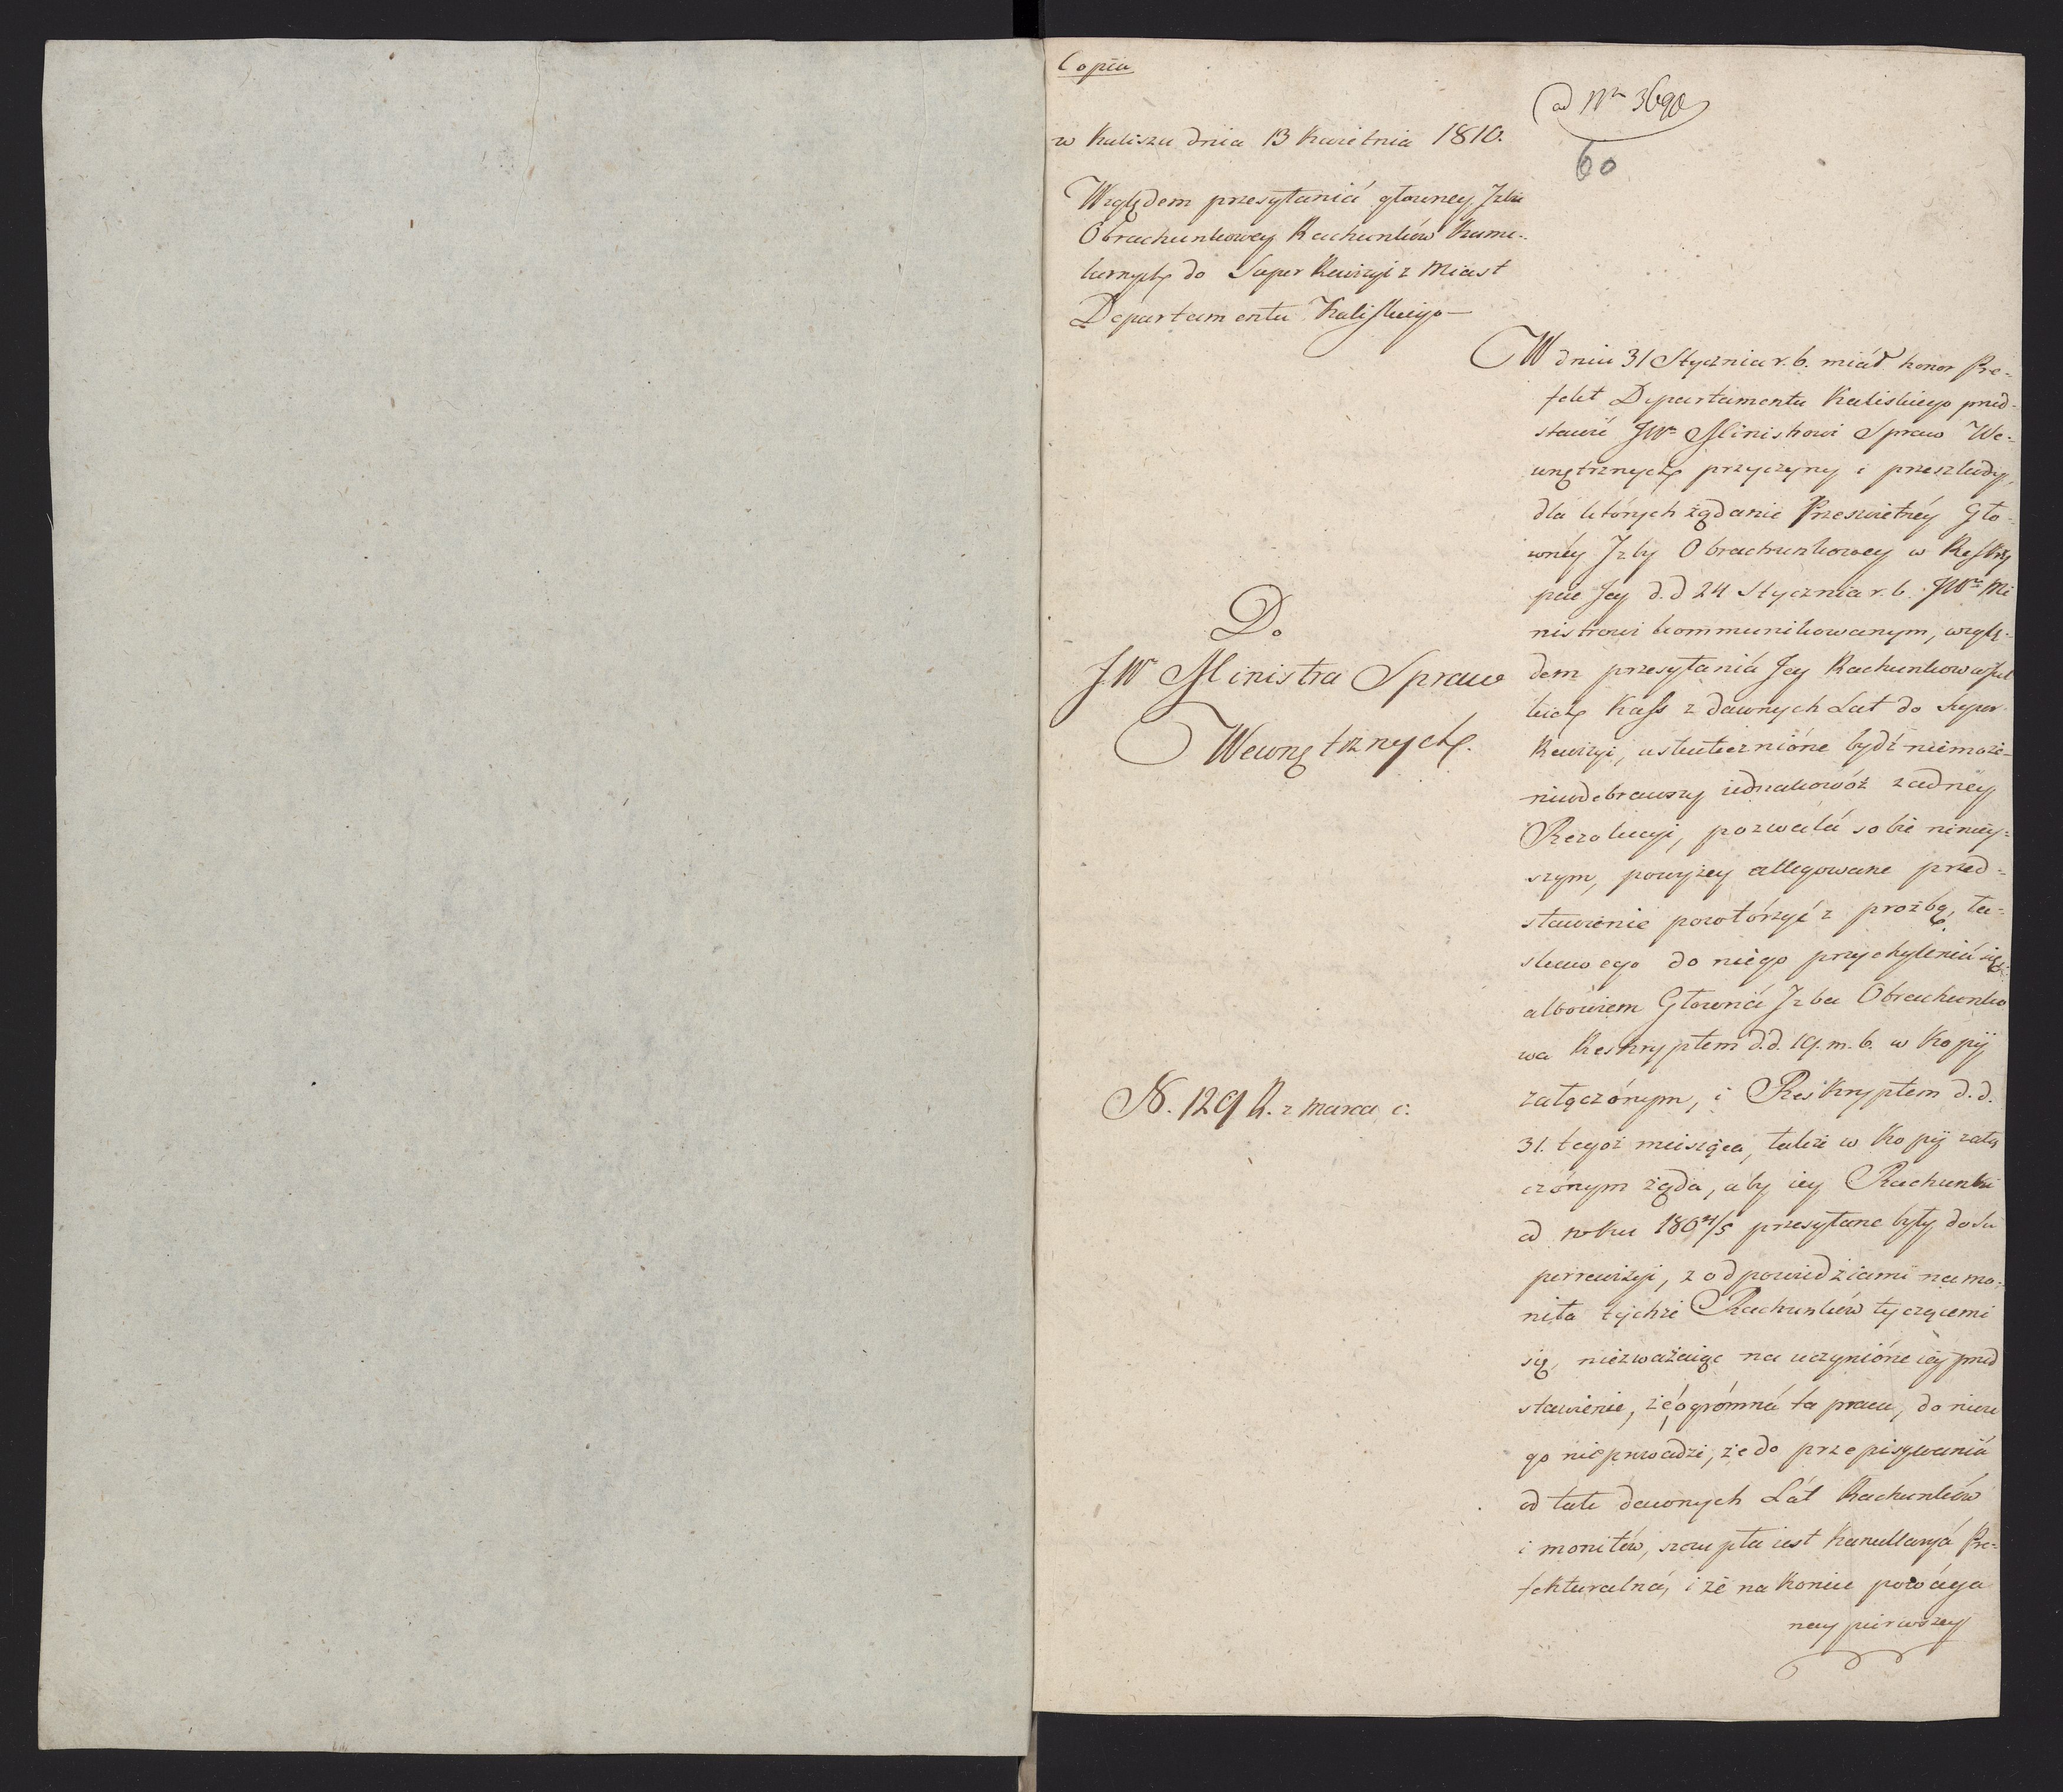 Copia
ad Nr 3690
60
w Kaliszu dnia 13 Kwietnia 1810.
Względem przesyłaniá główney Izbie
Obrachunkowey Rachunków Kame-
larnych do Super Rewizyi z Miast
Departamentu Kaliskiego
Do
JWo Ministra Spraw
Wewnętrznych.
N. 129 R. z marca c.
W dniu 31 Stycznia r. b. miáł honor Pre-
fekt Departamentu Kaliskiego przed-
stawić JWu Ministrowi Spraw We-
wnętrznych przyczyny i przeszkody,
dla których żądanie Prześwietnéy Gło-
wnéy Izby Obrachunkowey w Reskry
pcie Jey d.d 24 Stycznia r. b. JWu Mi
nistrowi kommunikowanym, wzglę-
dem przesyłaniá Jey Rachunkow
Kass z dawnych Lat do Super-
Rewizyi, uskutecznióne bydź niemoże-
nieodebrawszy iednakowóż żadnéy
Rezolucyi, pozwalá sobie niniey-
szym, powyżey allegowane przed-
stawienie powtórzyć z prozbą, ła-
skawego do niego przychyleniá się
albowiem Głowná Izba Obrachunko
wa Reskryptem d.d. 19. m. b. w Kopij
załączónym, i Reskryptem d.d.
31. tegoż miesiąca, także w Kopij załą
czónym żąda, aby iey Rachunki
od roku 1804/5 przesyłane były do Su
perrewizyi, z odpowiedziami na mo-
nita tychże Rachunków tyczącemi
się, niezważaiąc na uczynióne iéy przed
stawienie, że ógrómná ta praca, do nicze
go nie prowadzi, że do przepisywaniá
od tak dawnych Lát Rachunków
i monitów, szczupła iest Kancellaryá Pre-
fekturalná, i że na koniec
ney pierwszey